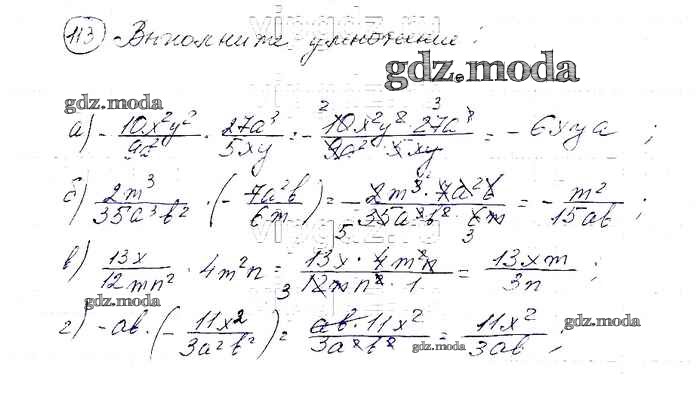 vipgdz.ru
113 Выполните умножение:
gdz.moda
gdz.moda
а) - 10x²y²/9a² · 27a³/5xy = - 10x²y² · 27a³/9a² · 5xy = - 6xya ;
б) 2m³/35a³b² · (- 7a²b/6m) = - 2m³ · 7a²b/35a³b² · 6m = - m²/15ab ;
в) 13x/12mn² · 4m²n = 13x · 4m²n/12mn² · 1 = 13xm/3n ;
gdz.moda
г) -ab · (- 11x²/3a²b²) = ab · 11x²/3a²b² = 11x²/3ab ;
gdz.moda
gdz.moda